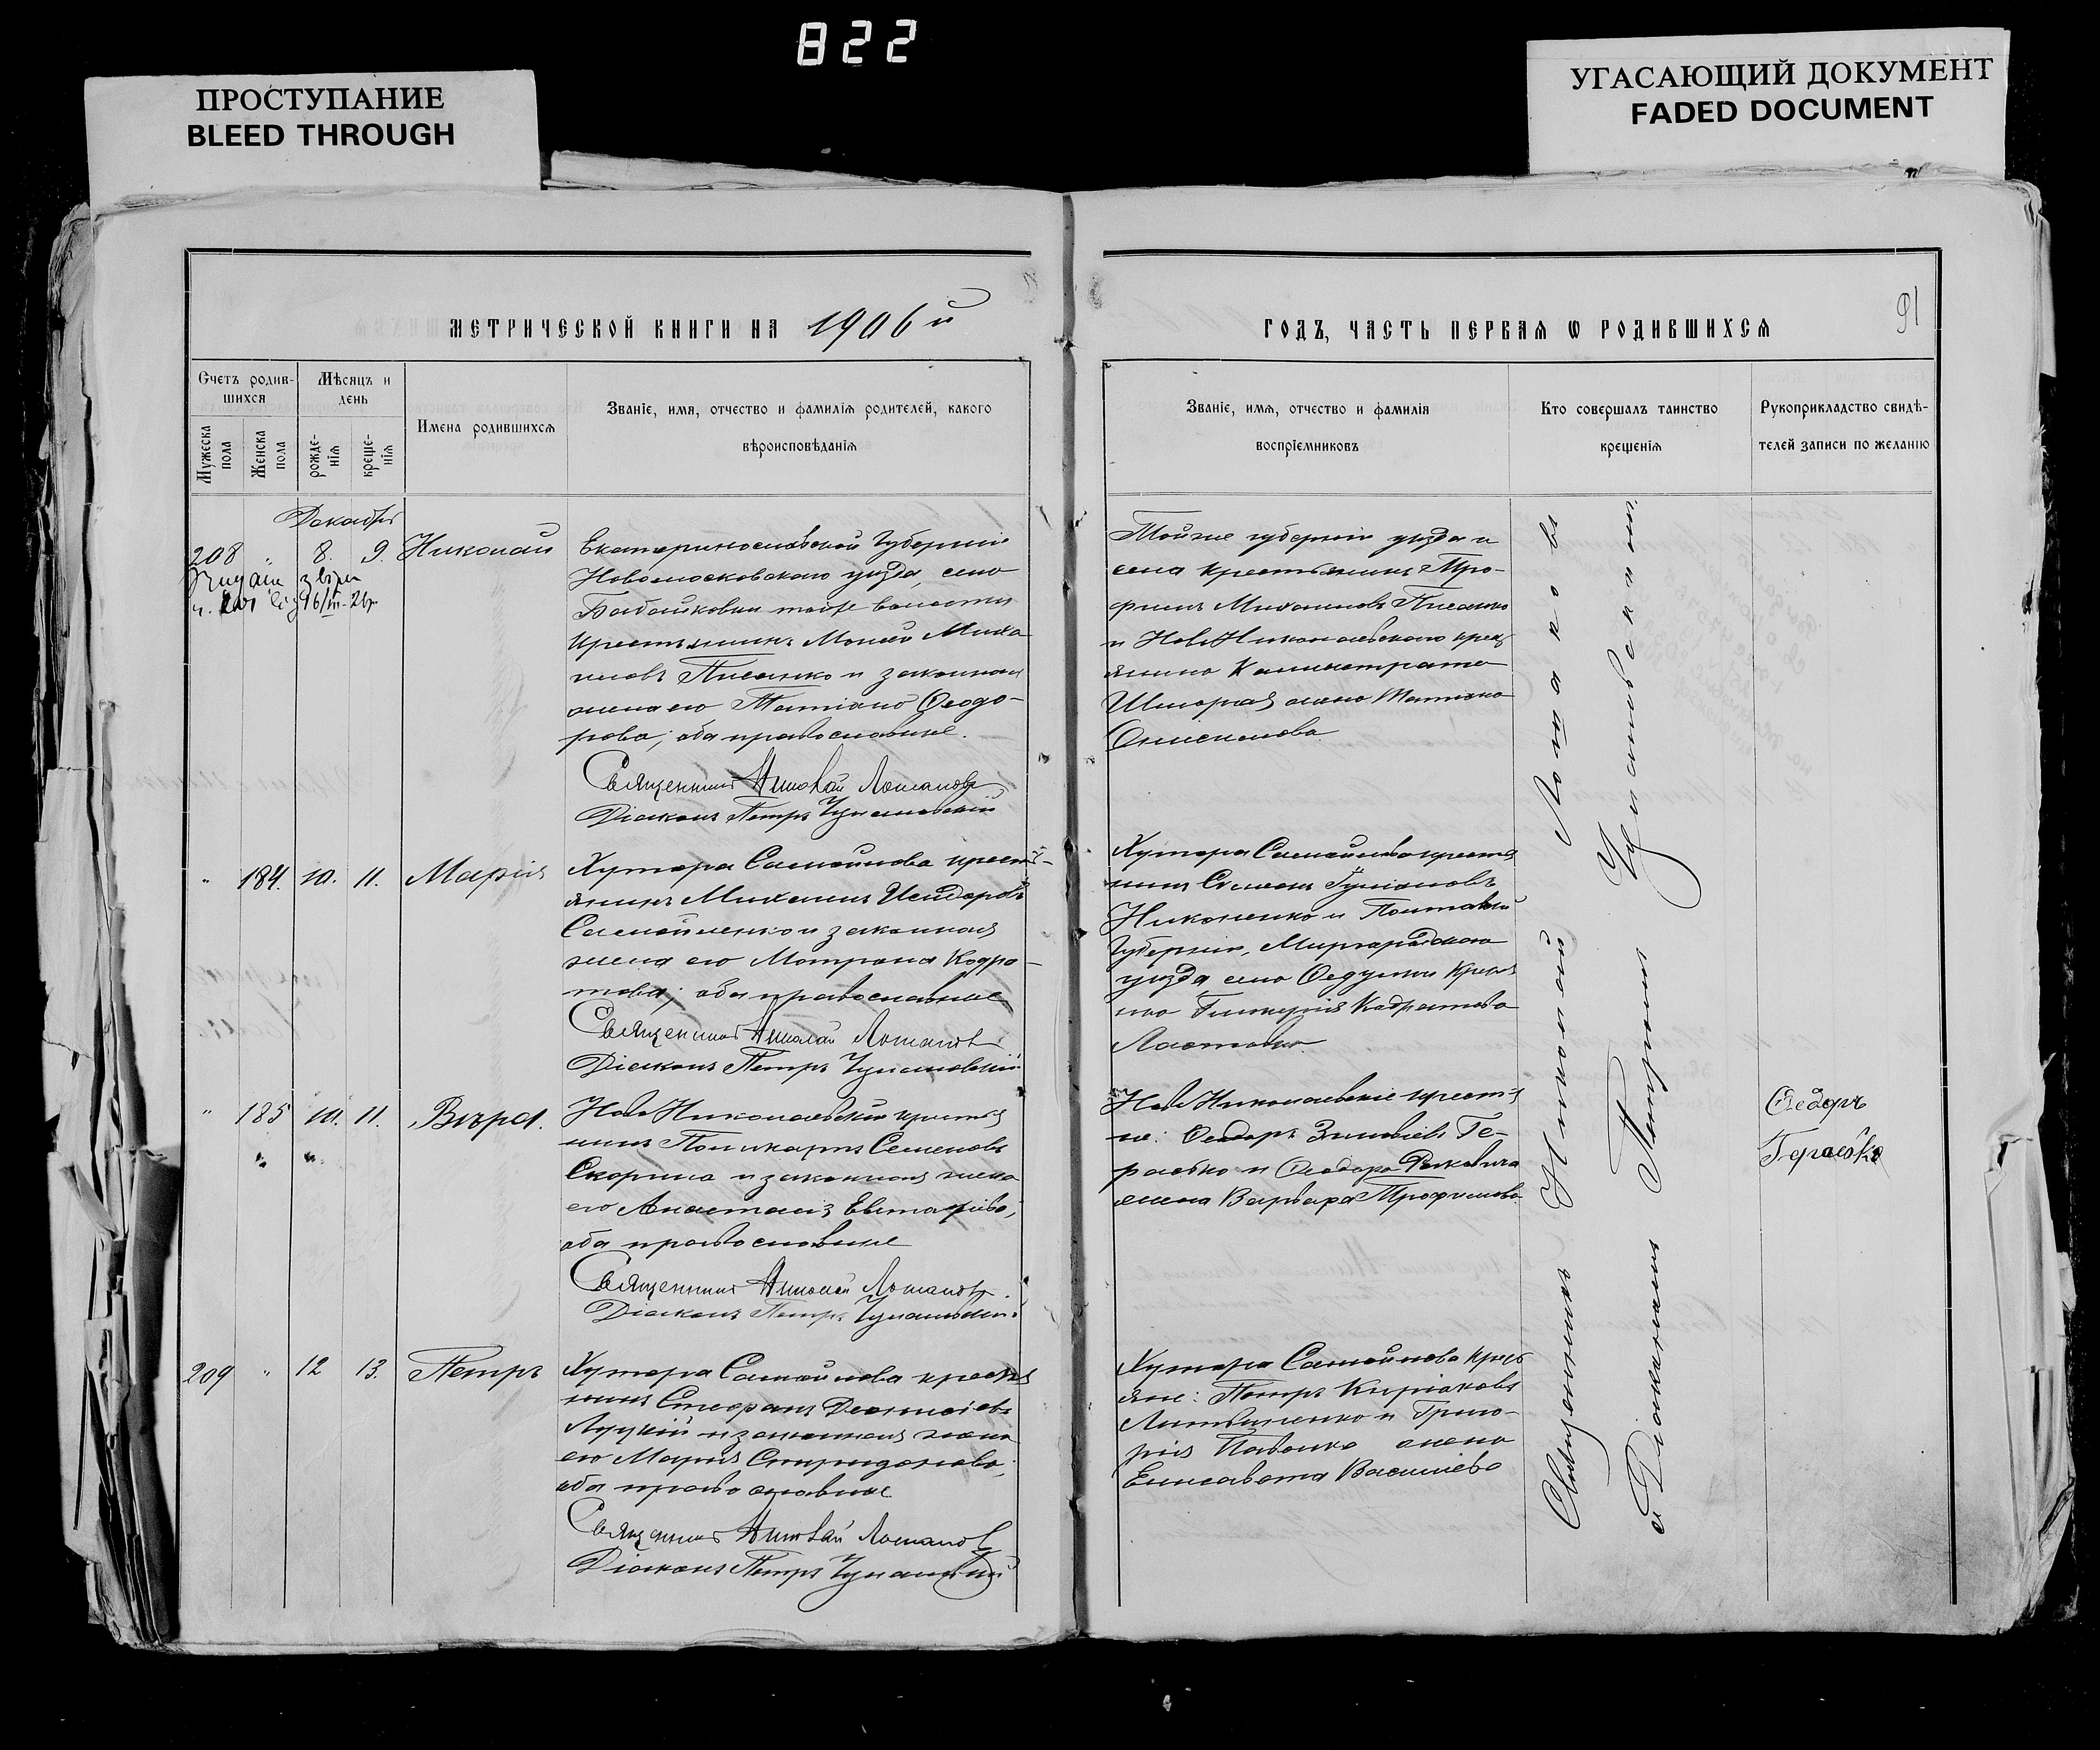 822
ПРОСТУПАНИЕ
BLEED THROUGH
УГАСАЮЩИЙ ДОКУМЕНТ
FADED DOCUMENT
91
МЕТРИЧЕСКОЙ КНИГИ НА 1906 й
ГОДЪ, ЧАСТЬ ПЕРВАЯ Ѡ РОДИВШИХСЯ
Счетъ родив-
шихся
Мужеска
пола
Женска
пола
Мѣсяцъ и
день
рожде-
нія
креще-
нія
Имена родившихся
Званіе, имя, отчество и фамилія родителей, какого
вѣроисповѣданія
Званіе, имя, отчество и фамилія
воспріемниковъ
Кто совершалъ таинство
крещенія
Рукоприкладство свидѣ-
телей записи по желанію
Декабрь
208 " 8. 9. Николай
Екатеринославской Губерніи
Новомосковскаго уѣзда, села
Бабайковки той же волости
крестьянинъ Моисей Миха
иловъ Писанко и законная
жена его Татіана Ѳеодо-
рова; оба православные.
Священникъ Николай Лошаковъ
Діаконъ Петръ
Той же губерніи уѣзда и
села крестьянинъ Тро-
фимъ Михаиловъ Писанко
и Ново Николаевскаго крест
янина Каллистрата
жена Татіана
Онисимова
" 184. 10. 11. Марія
Хутора Самойлова крест-
янинъ Михаилъ Исидоровъ
Самойленко и законная
жена его Матрона Кодра-
това; оба православные
Священникъ Николай Лошаковъ
Діаконъ Петръ
Хутора Самойлова крестья
нинъ Стефанъ
Николенко и Полтавской
Губерніи, Миргородскаго
уѣзда села крест
Гликерія Кадратова
" 185 10. 11. Вѣра.
Ново Николаевскій крестья
нинъ Поликарпъ Семеновъ
Скорина и законная жена
его Анастасія
оба православные
Священникъ Николай Лошаковъ.
Діаконъ Петръ
Ново Николаевскіе крестья
не: Ѳеодоръ Зиновіевъ Ге-
расько и Ѳеодора
жена Варвара Трофимова
Ѳедоръ
Герасько
209 " 12 13. Петръ
Хутора Самойлова крестья
нинъ Стефанъ Деонисіевъ
Луцкій и законная жена
его Марія Спиридонова;
оба православные
Священникъ Николай Лошаковъ
Діаконъ Петръ
Хутора Самойлова крест
яне: Петръ Киріаковъ
Литвиненко и Григо-
рія жена
Елисавета Васильева
Священникъ Николай Лошаковъ
и Діаконъ Петръ